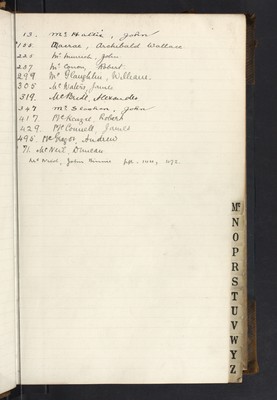 13. Mc Hattie, John
100. Macrae, Archibald Wallace
225 Mc Murrich, John
257 Mc Conory, Robert
299 Mc Glaughlin, William.
305 Mc Waters, James
319. Mc Bride, Alexander
347 Mc John
417. McKenzie, Robert
429. McConnell, James
495. McGregor, Andrew
71. McNeil, Duncan
McNeish, John pp. 144, 172.
Mc
N
O
P
R
S
T
U
V
W
Y
Z